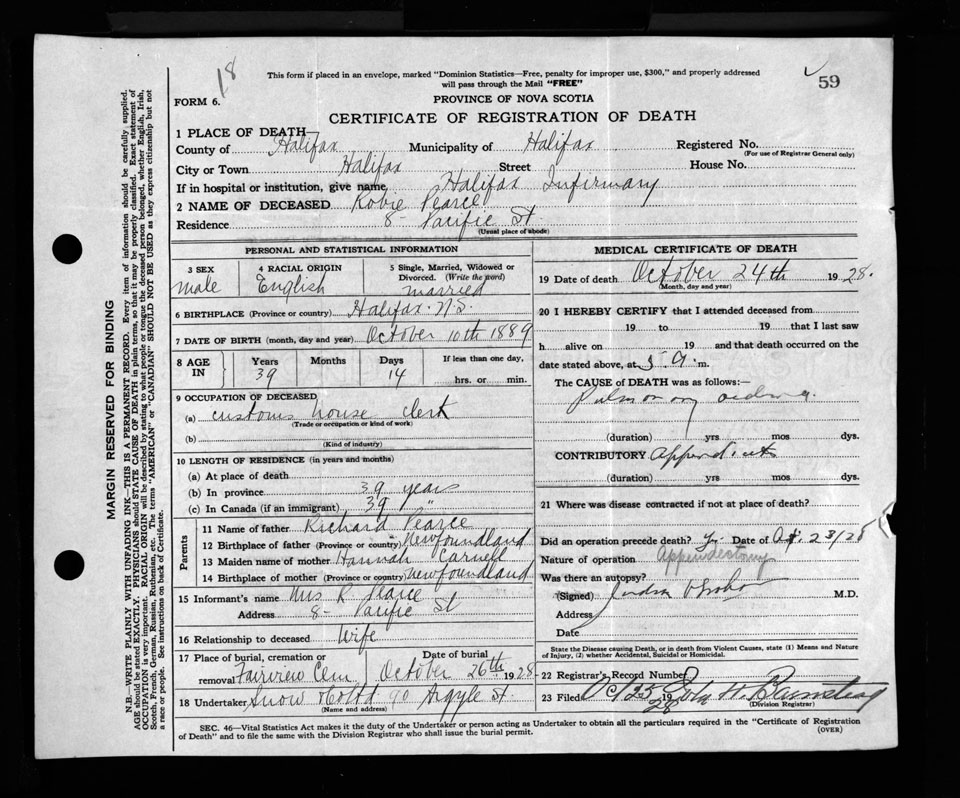 18
This form if placed in an envelope, marked "Dominion Statistics—Free, penalty for improper use, $300," and properly addressed
will pass through the Mail "FREE"
59
FORM 6.
PROVINCE OF NOVA SCOTIA
CERTIFICATE OF REGISTRATION OF DEATH
1 PLACE OF DEATH
County of Halifax Municipality of Halifax Registered No.
(For use of Registrar General only)
City or Town Halifax Street House No.
If in hospital or institution, give name Halifax Infirmary
2 NAME OF DECEASED Robie Pearce
Residence 8 - Pacific St
(Usual place of abode)
MARGIN RESERVED FOR BINDING
N.B.—WRITE PLAINLY WITH UNFADING INK—THIS IS A PERMANENT RECORD. Every item of information should be carefully supplied.
AGE should be stated EXACTLY. PHYSICIANS should STATE CAUSE OF DEATH in plain terms, so that it may be properly classified. Exact statement of
OCCUPATION is very important. RACIAL ORIGIN will be described by stating to what people or tongue the deceased person belonged, whether English, Irish,
Scotch, French, German, Russian, Ruthenian, etc. The terms "AMERICAN" or "CANADIAN" SHOULD NOT BE USED as they express citizenship but not
a race or people. See instructions on back of Certificate.
PERSONAL AND STATISTICAL INFORMATION
3 SEX
male
4 RACIAL ORIGIN
English
5 Single, Married, Widowed or
Divorced. (Write the word)
married
6 BIRTHPLACE (Province or country) Halifax. N.S.
7 DATE OF BIRTH (month, day and year) October 10th 1889
8 AGE IN
Years Months Days If less than one day,
39 14 hrs. or min.
9 OCCUPATION OF DECEASED
(a) customs house clerk
(Trade or occupation or kind of work)
(b)
(Kind of industry)
10 LENGTH OF RESIDENCE (in years and months)
(a) At place of death
(b) In province 39 years
(c) In Canada (if an immigrant) 39 "
Parents
11 Name of father Richard Pearce
12 Birthplace of father (Province or country) Newfoundland
13 Maiden name of mother Hannah Carnell
14 Birthplace of mother (Province or country) Newfoundland
15 Informant's name Mrs R Pearce
Address 8 - Pacific St
16 Relationship to deceased Wife
17 Place of burial, cremation or removal Fairview Cem
Date of burial
October 26th 1928
18 Undertaker Snow & Co Ltd 90 Argyle St.
(Name and address)
MEDICAL CERTIFICATE OF DEATH
19 Date of death October 24th 1928.
(Month, day and year)
20 I HEREBY CERTIFY that I attended deceased from
19 to 19 that I last saw
h alive on 19 and that death occurred on the
date stated above, at 5 A. m.
The CAUSE of DEATH was as follows:—
Pulmonary oedema.
(duration) yrs mos dys.
CONTRIBUTORY Appendicitis
(duration) yrs mos dys.
21 Where was disease contracted if not at place of death?
Did an operation precede death? Yes Date of Oct. 23/28
Nature of operation Appendectomy
Was there an autopsy?
(Signed) M.D.
Address
Date
State the Disease causing Death, or in death from Violent Causes, state (1) Means and Nature
of Injury, (2) whether Accidental, Suicidal or Homicidal.
22 Registrar's Record Number
23 Filed Oct 25 1928 John H.
(Division Registrar)
SEC. 46—Vital Statistics Act makes it the duty of the Undertaker or person acting as Undertaker to obtain all the particulars required in the "Certificate of Registration
of Death" and to file the same with the Division Registrar who shall issue the burial permit.
(OVER)